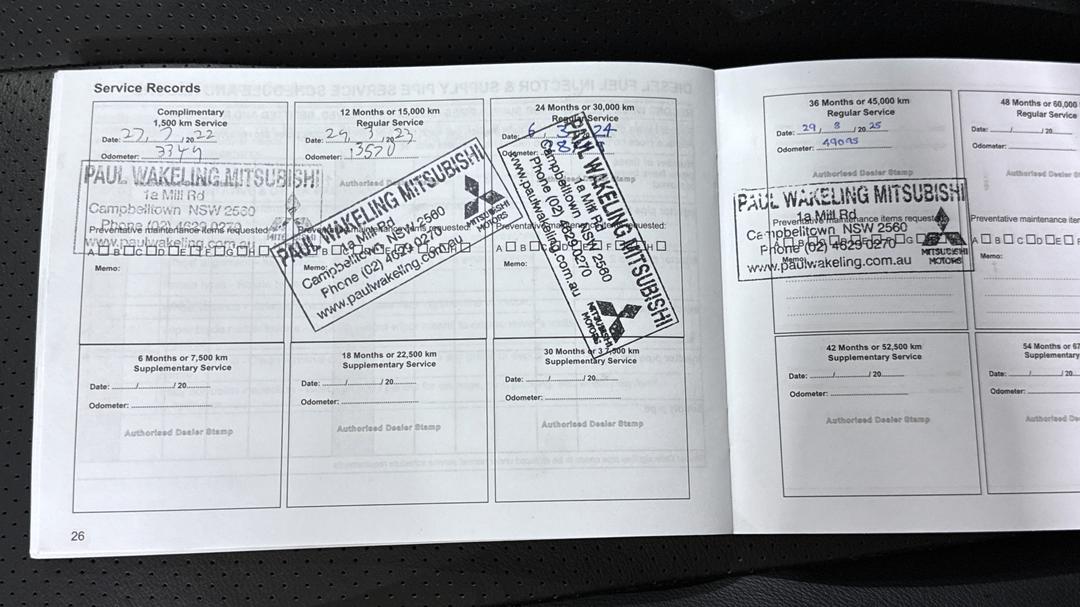 Service Records
Complimentary
1,500 km Service
Date: 27, 7 / 20 22
Odometer:
PAUL WAKELING MITSUBISHI
1a Mill Rd
Campbelltown NSW 2560
www.paulwakeling.com.au
Preventative maintenance items requested:
A B C D E F G H
Memo:
12 Months or 15,000 km
Regular Service
Date: 29, / 20 23
Odometer: 13570
Authorised Dealer Stamp
PAUL WAKELING MITSUBISHI
1a Mill Rd
Campbelltown NSW 2560
Phone (02) 4629 0270
www.paulwakeling.com.au
MITSUBISHI
MOTORS
Memo:
24 Months or 30,000 km
Regular Service
Date: 6 / 3 / 20 24
Odometer:
PAUL WAKELING MITSUBISHI
1a Mill Rd
Campbelltown NSW 2560
Phone (02) 4629 0270
www.paulwakeling.com.au
MITSUBISHI
MOTORS
Preventative maintenance items requested:
Memo:
36 Months or 45,000 km
Regular Service
Date: 29, 8 / 20 25
Odometer: 49095
Authorised Dealer Stamp
PAUL WAKELING MITSUBISHI
1a Mill Rd
Campbelltown NSW 2560
Phone (02) 4629 0270
www.paulwakeling.com.au
MITSUBISHI
MOTORS
Preventative maintenance items requested:
48 Months or 60,000
Regular Service
Date: / / 20
Odometer:
Authorised De
Preventative maintenance iter
A B C D E F
Memo:
6 Months or 7,500 km
Supplementary Service
Date: / / 20
Odometer:
Authorised Dealer Stamp
18 Months or 22,500 km
Supplementary Service
Date: / / 20
Odometer:
Authorised Dealer Stamp
30 Months or 37,500 km
Supplementary Service
Date: / / 20
Odometer:
Authorised Dealer Stamp
42 Months or 52,500 km
Supplementary Service
Date: / / 20
Odometer:
Authorised Dealer Stamp
54 Months or 67
Supplementary
Date: /
Odometer:
Authorised De
26